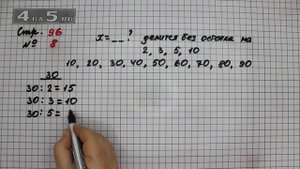 4 a 5 ru
Стр. 96
№ 8
x = __ ? делится без остатка на
2, 3, 5, 10
10, 20, 30, 40, 50, 60, 70, 80, 90
30
30 : 2 = 15
30 : 3 = 10
30 : 5 =